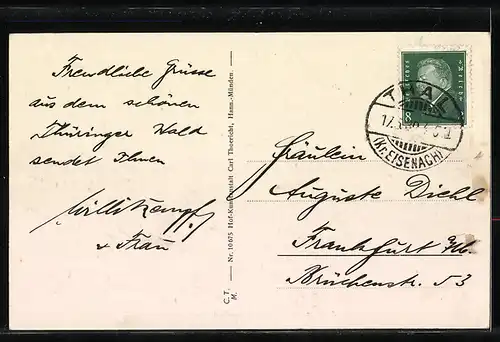 Freundliche Grüsse
aus dem schönen
Thüringer Wald
sendet Ihnen
Willi Kempf
+ Frau
Nr. 10675 Hof-Kunstanstalt Carl Thoericht, Hann.-Münden
C. T.
M.
8
THAL
(Kr. EISENACH)
Fräulein
Auguste Diehl
Frankfurt a/M.
Brückenstr. 53